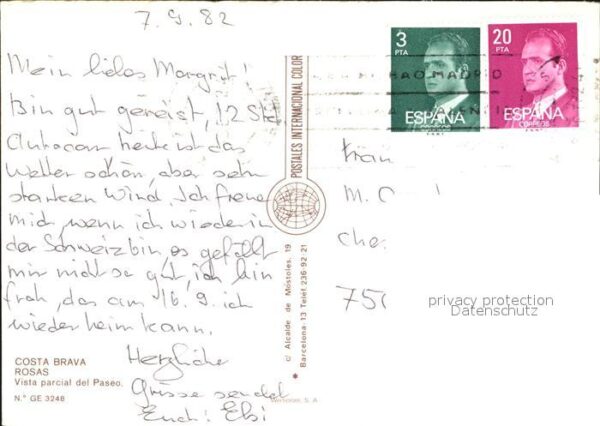 7.9.82
Mein liebes Margrit!
Bin gut gereist, 12 Std
Autocar heute ist das
Wetter schön, aber sehr
starken Wind. Ich freue
mich, wenn ich wieder in
der Schweiz bin, es gefällt
mir nicht so gut, ich bin
froh, das am 16.9. ich
wieder heim kann.
Herzliche
Grüsse sendet
Euch: Elsi
COSTA BRAVA
ROSAS
Vista parcial del Paseo.
N.° GE 3248
POSTALES INTERNACIONAL COLOR
c/ Alcalde de Móstoles, 19
Barcelona-13 Telef. 236 92 21
3
PTA
ESPAÑA
CORREOS
20
PTA
ESPAÑA
CORREOS
MADRID
Frau
M.
Che
750
privacy protection
Datenschutz